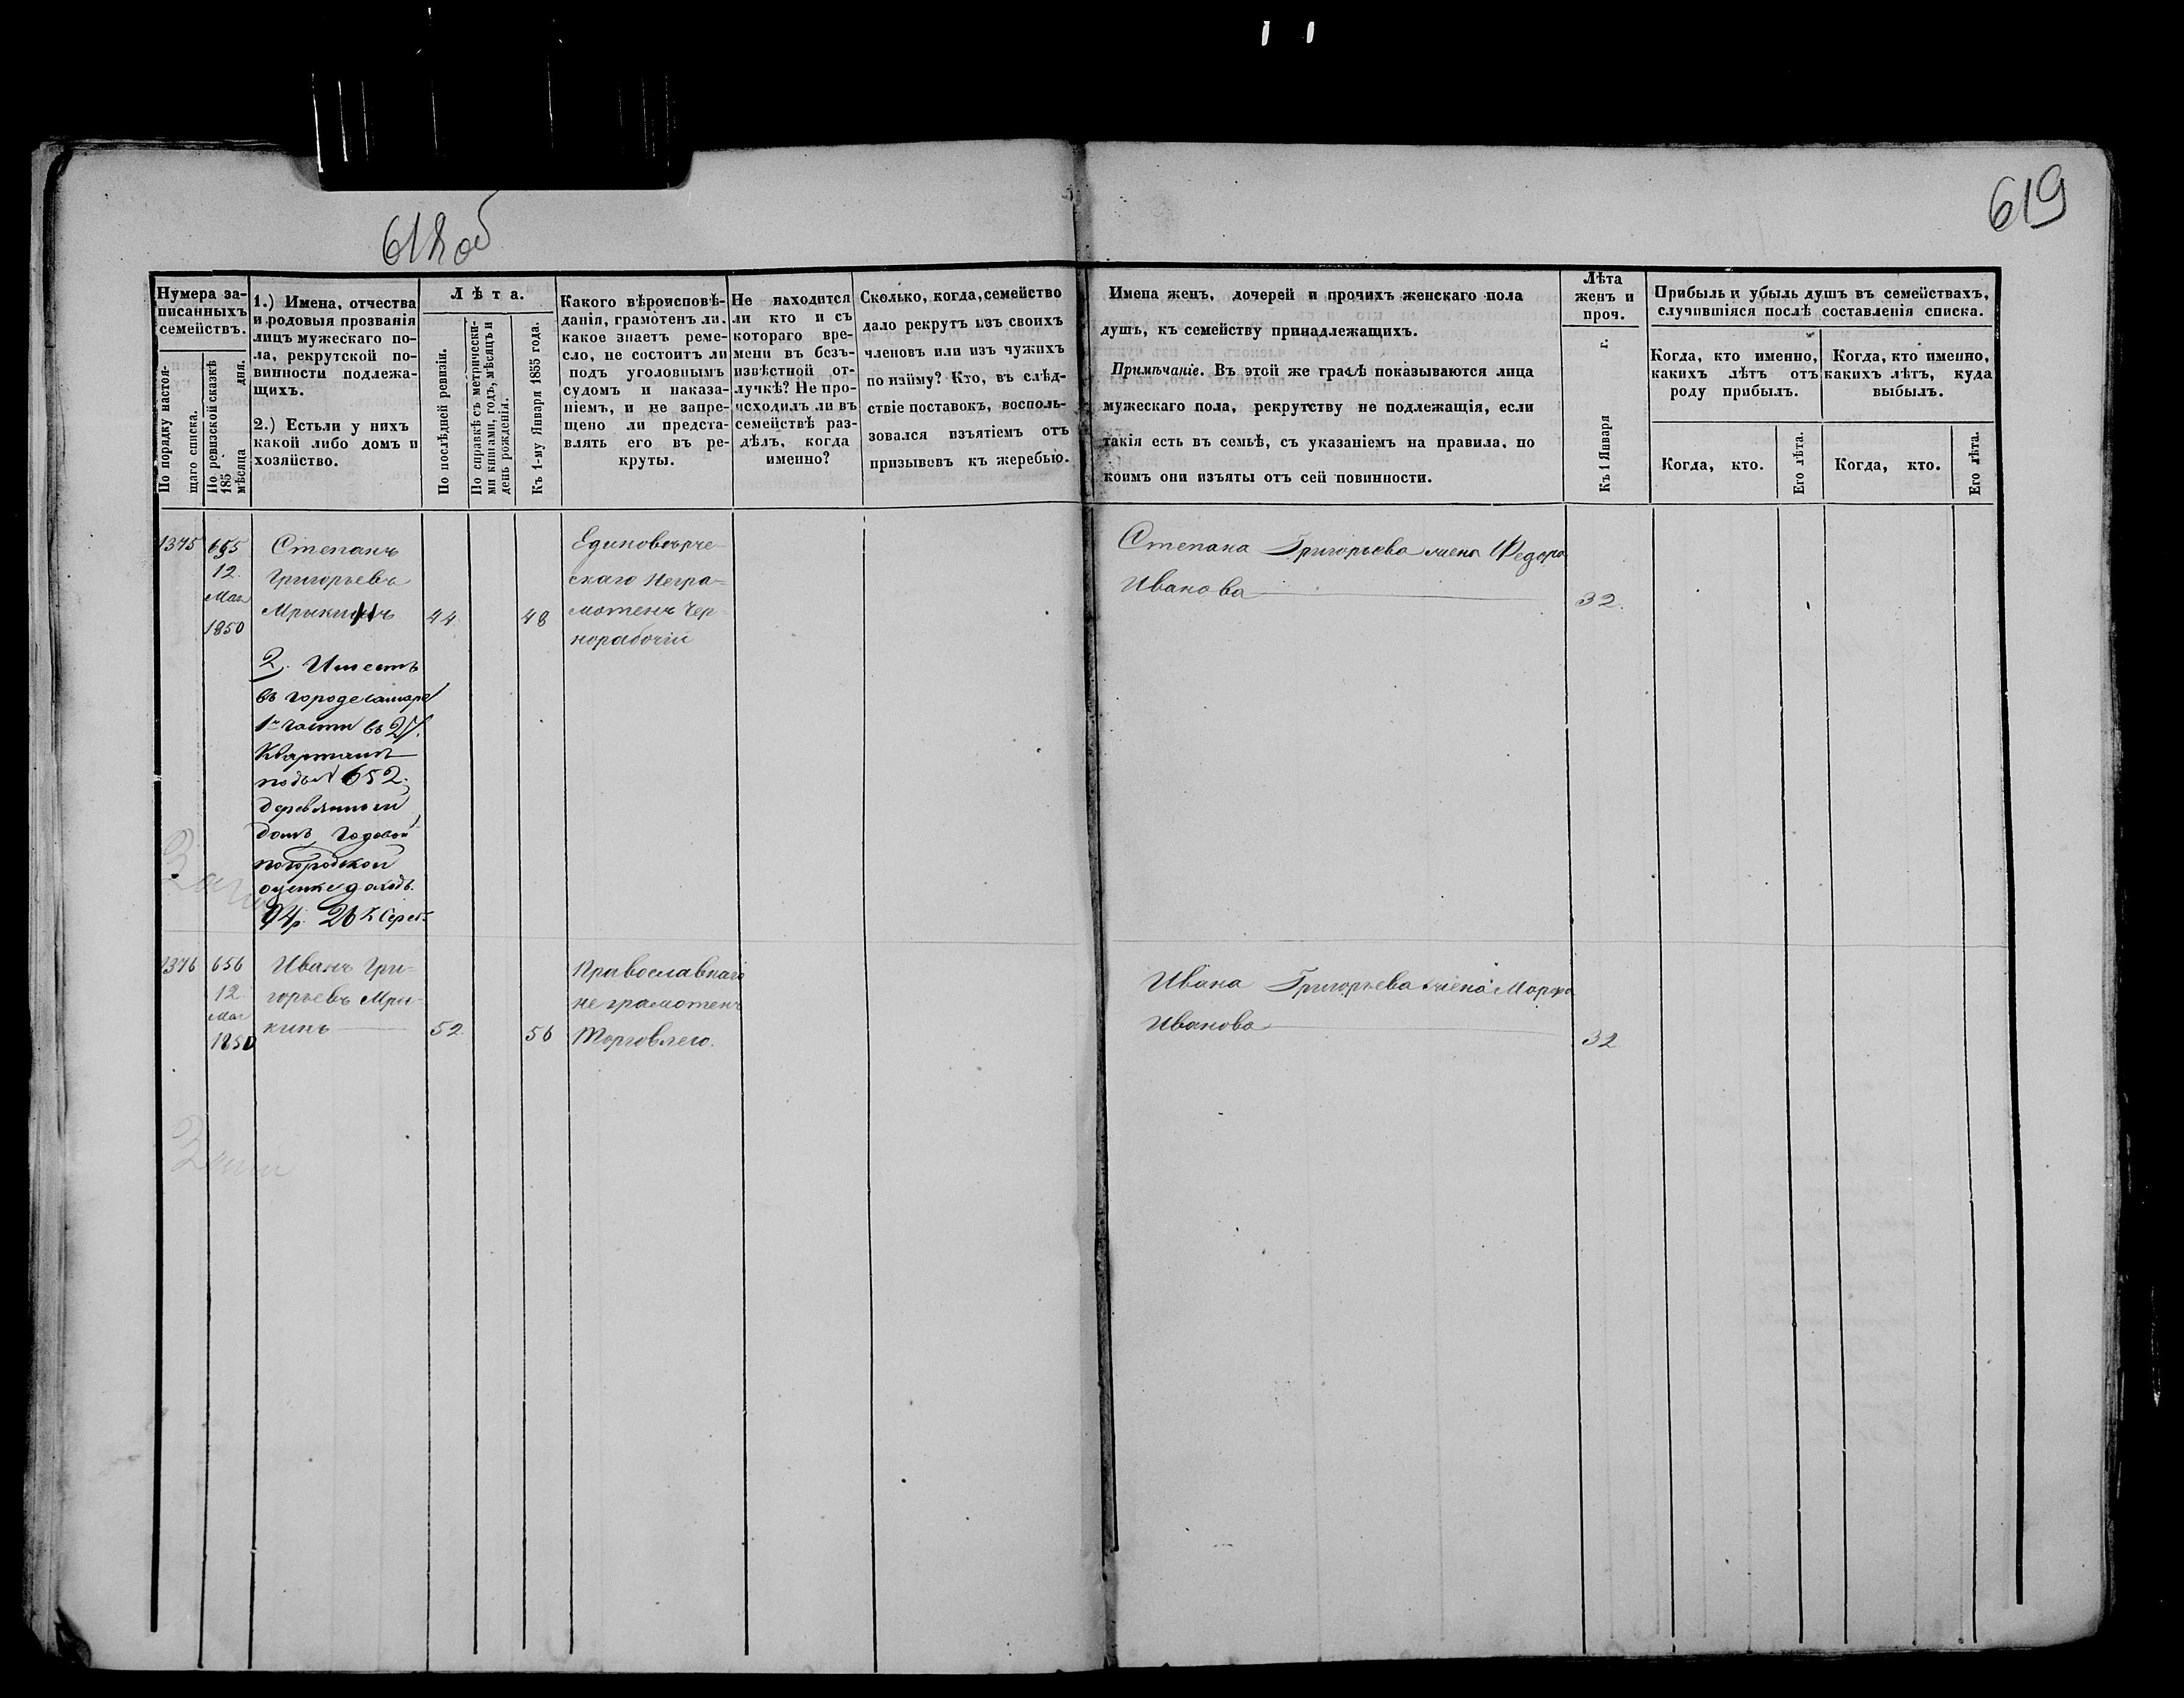 618 об
619
Нумера за-
писанныхъ
семействъ.
По порядку настоя-
щаго списка.
По ревизской сказкѣ
185 дня.
мѣсяца
1.) Имена, отчества
и родовыя прозванія
лицъ мужескаго по-
ла, рекрутской по-
винности подлежа-
щихъ.
2.) Естьли у нихъ
какой либо домъ и
хозяйство.
Лѣта.
По послѣдней ревизіи.
По справкѣ съ метрически-
ми книгами, годъ, мѣсяцъ и
день рожденія.
Къ 1-му Января 1855 года.
Какого вѣроисповѣ-
данія, грамотенъ ли.
какое знаетъ реме-
сло, не состоитъ ли
подъ уголовнымъ
судомъ и наказа-
ніемъ, и не запре-
щено ли предста-
влять его въ ре-
круты.
Не находится
ли кто и съ
котораго вре-
мени въ безъ-
извѣстной от-
лучкѣ? Не про-
исходилъ ли въ
семействѣ раз-
дѣлъ, когда
именно?
Сколько, когда, семейство
дало рекрутъ изъ своихъ
членовъ или изъ чужихъ
по найму? Кто, въ слѣд-
ствіе поставокъ, восполь-
зовался изъятіемъ отъ
призывовъ къ жеребью.
Имена женъ, дочерей и прочихъ женскаго пола
душъ, къ семейству принадлежащихъ.
Примѣчаніе. Въ этой же графѣ показываются лица
мужескаго пола, рекрутству не подлежащія, если
такія есть въ семьѣ, съ указаніемъ на правила, по
коимъ они изъяты отъ сей повинности.
Лѣта
женъ и
проч.
Къ 1 Января г.
Прибыль и убыль душъ въ семействахъ,
случившіяся послѣ составленія списка.
Когда, кто именно,
какихъ лѣтъ отъ
роду прибылъ.
Когда, кто именно,
какихъ лѣтъ, куда
выбылъ.
Когда, кто.
Его лѣта.
Когда, кто.
Его лѣта.
1375
655
12
Мая
1850
Степанъ
Григорьевъ
Мрыкинъ
44
48
Единовѣрче-
скаго Негра-
мотенъ Чер-
норабочій
Степана Григорьева жена Федора
Иванова
32.
2. Имеетъ
въ городе Самаре
1й части въ 27.
Квартале
подъ № 652.
деревянный
домъ Годовой
погородской
оценке доходъ
94р. 26 К Сереб.
1376
656
12
Мая
1850
Иванъ Гри-
горьевъ Мры-
кинъ
52
56
Православнаго
неграмотенъ
Торговлею.
Ивана Григорьева жена Марфа
Иванова
32